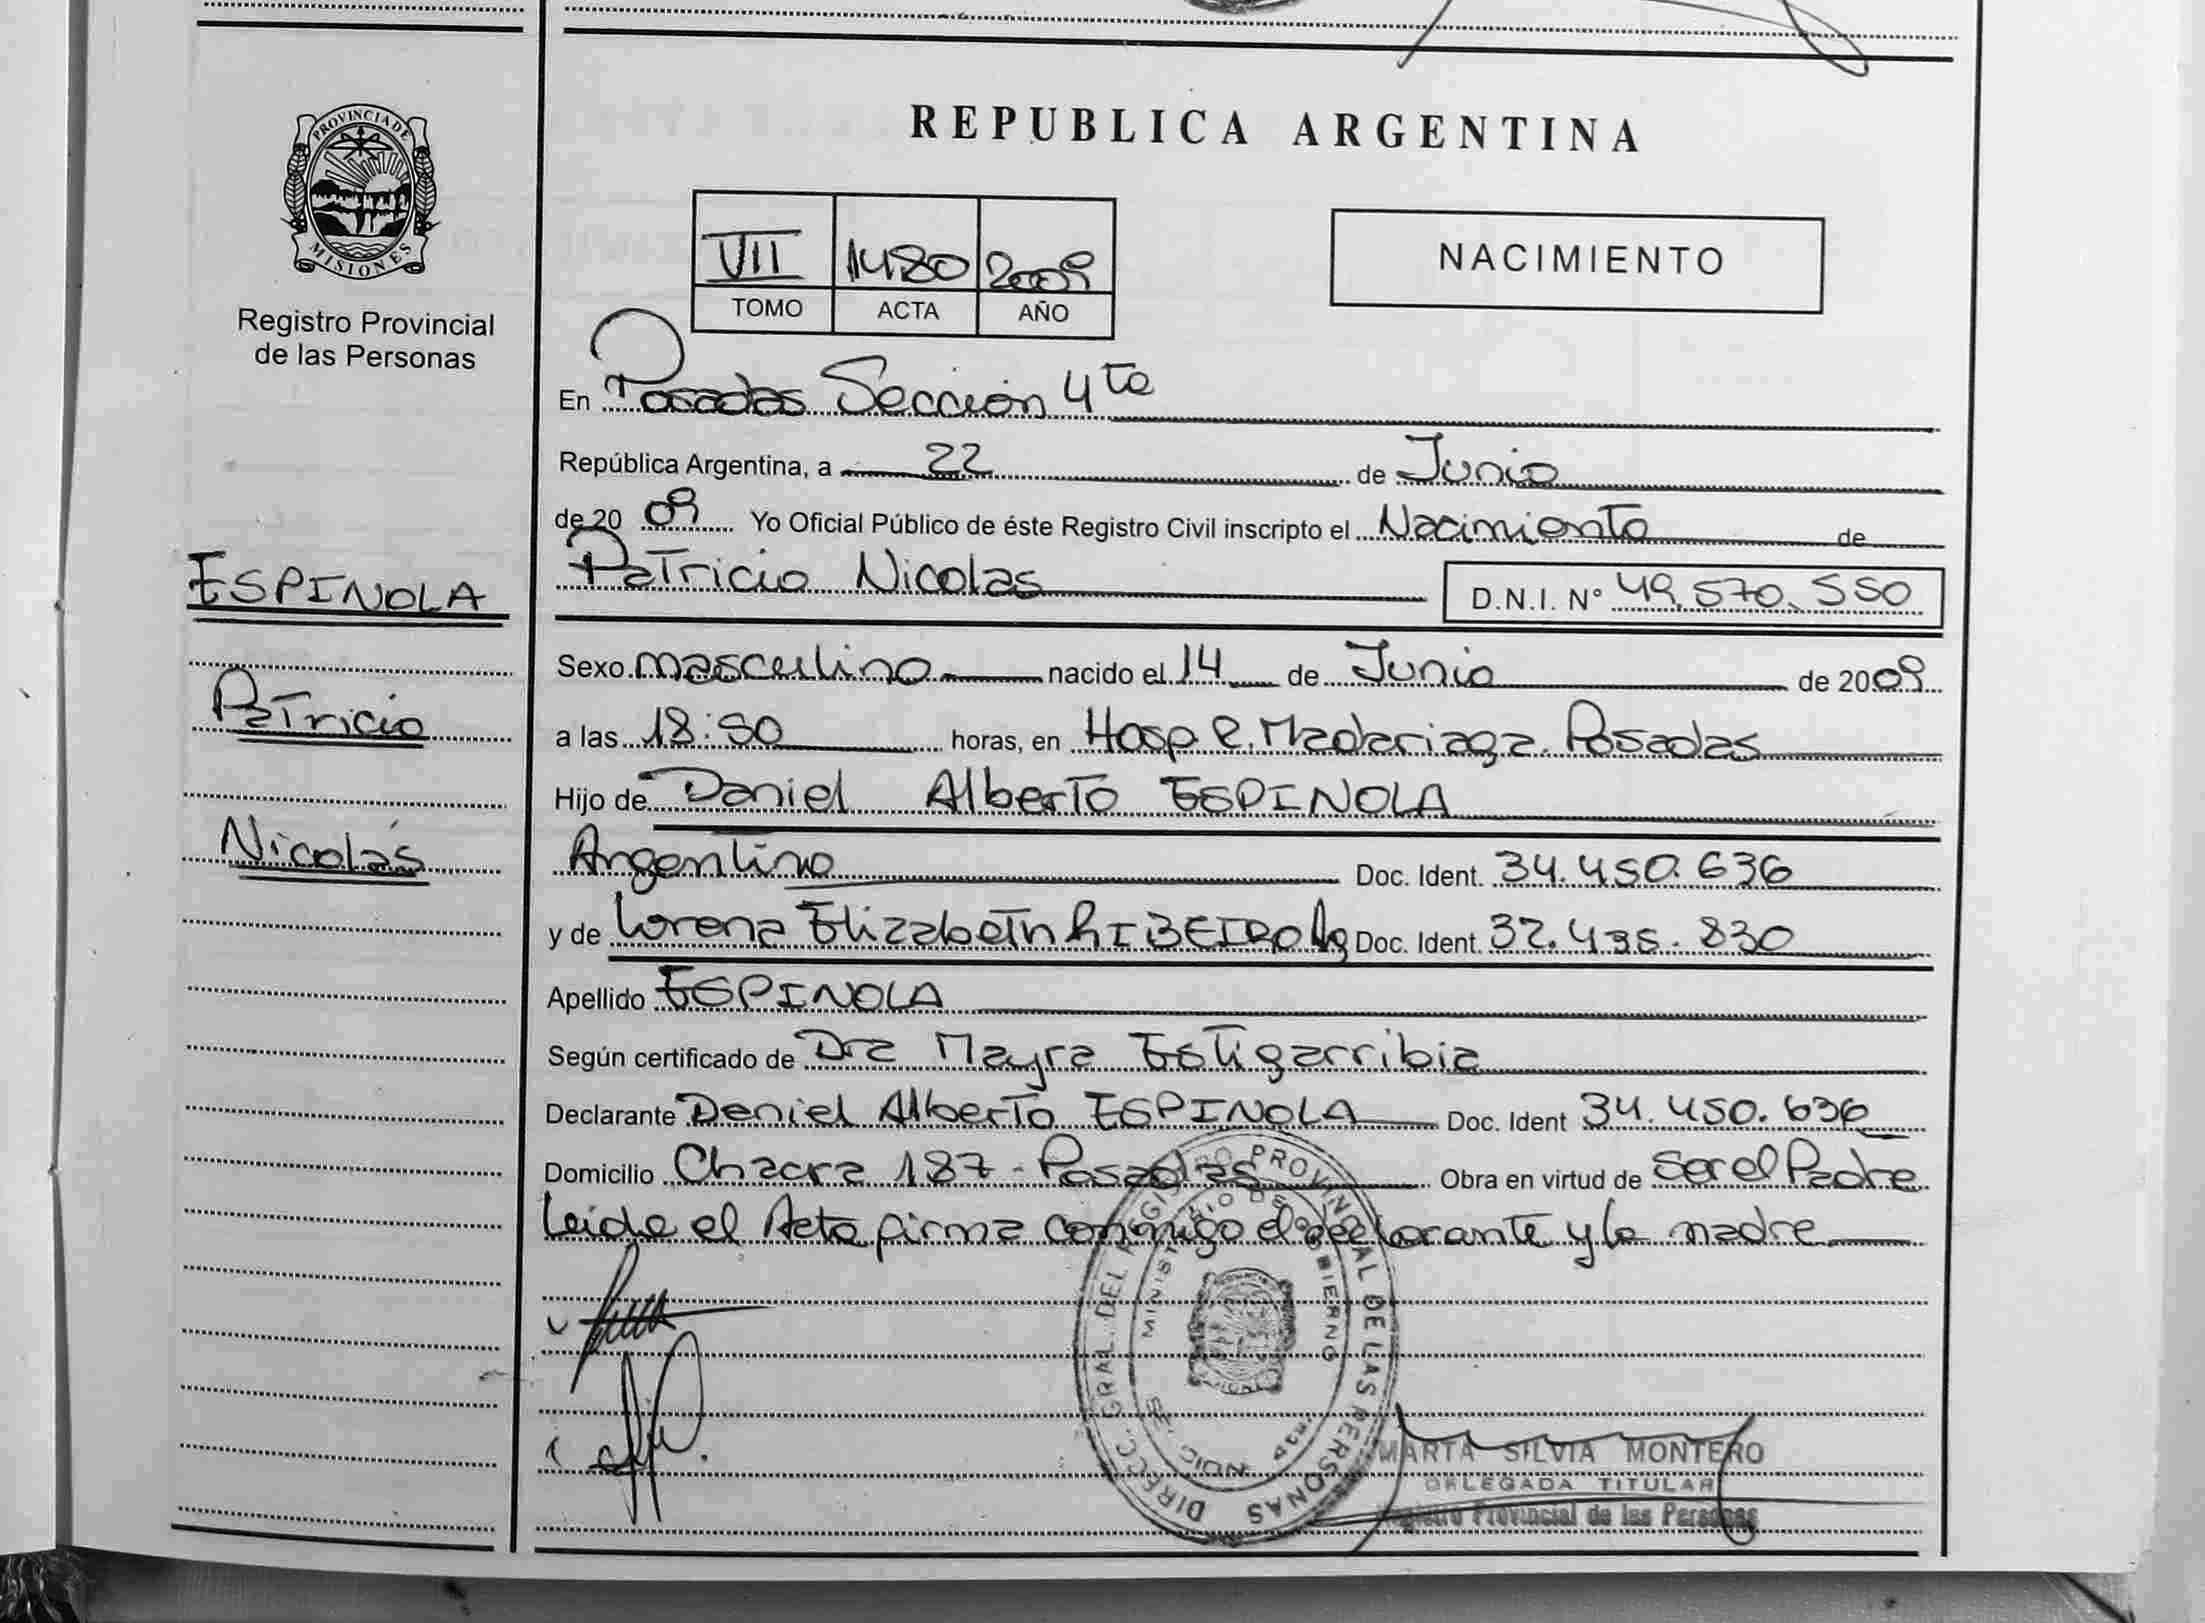 PROVINCIA DE
MISIONES
Registro Provincial
de las Personas
ESPINOLA
Patricio
Nicolás
REPUBLICA ARGENTINA
VII 1480 2009
TOMO ACTA AÑO
NACIMIENTO
En Posadas Sección 4ta
República Argentina, a 22 de Junio
de 20 09 Yo Oficial Público de éste Registro Civil inscripto el Nacimiento de
Patricio Nicolas D.N.I. N° 49.570.550
Sexo masculino nacido el 14 de Junio de 20 09
a las 18:50 horas, en Hosp. R. Madariaga. Posadas
Hijo de Daniel Alberto ESPINOLA
Argentino Doc. Ident. 34.450.636
y de Lorena Elizabeth RIBEIRO Ag Doc. Ident. 32.435.830
Apellido ESPINOLA
Según certificado de Dra Mayra Estigarribia
Declarante Daniel Alberto ESPINOLA Doc. Ident 34.450.636
Domicilio Chacra 187 - Posadas Obra en virtud de ser el Padre
Leida el Acta firma conmigo el declarante y la madre
DIRECC. GRAL. DEL REGISTRO PROVINCIAL DE LAS PERSONAS
MINISTERIO DE GOBIERNO
MARTA SILVIA MONTERO
DELEGADA TITULAR
Registro Provincial de las Personas